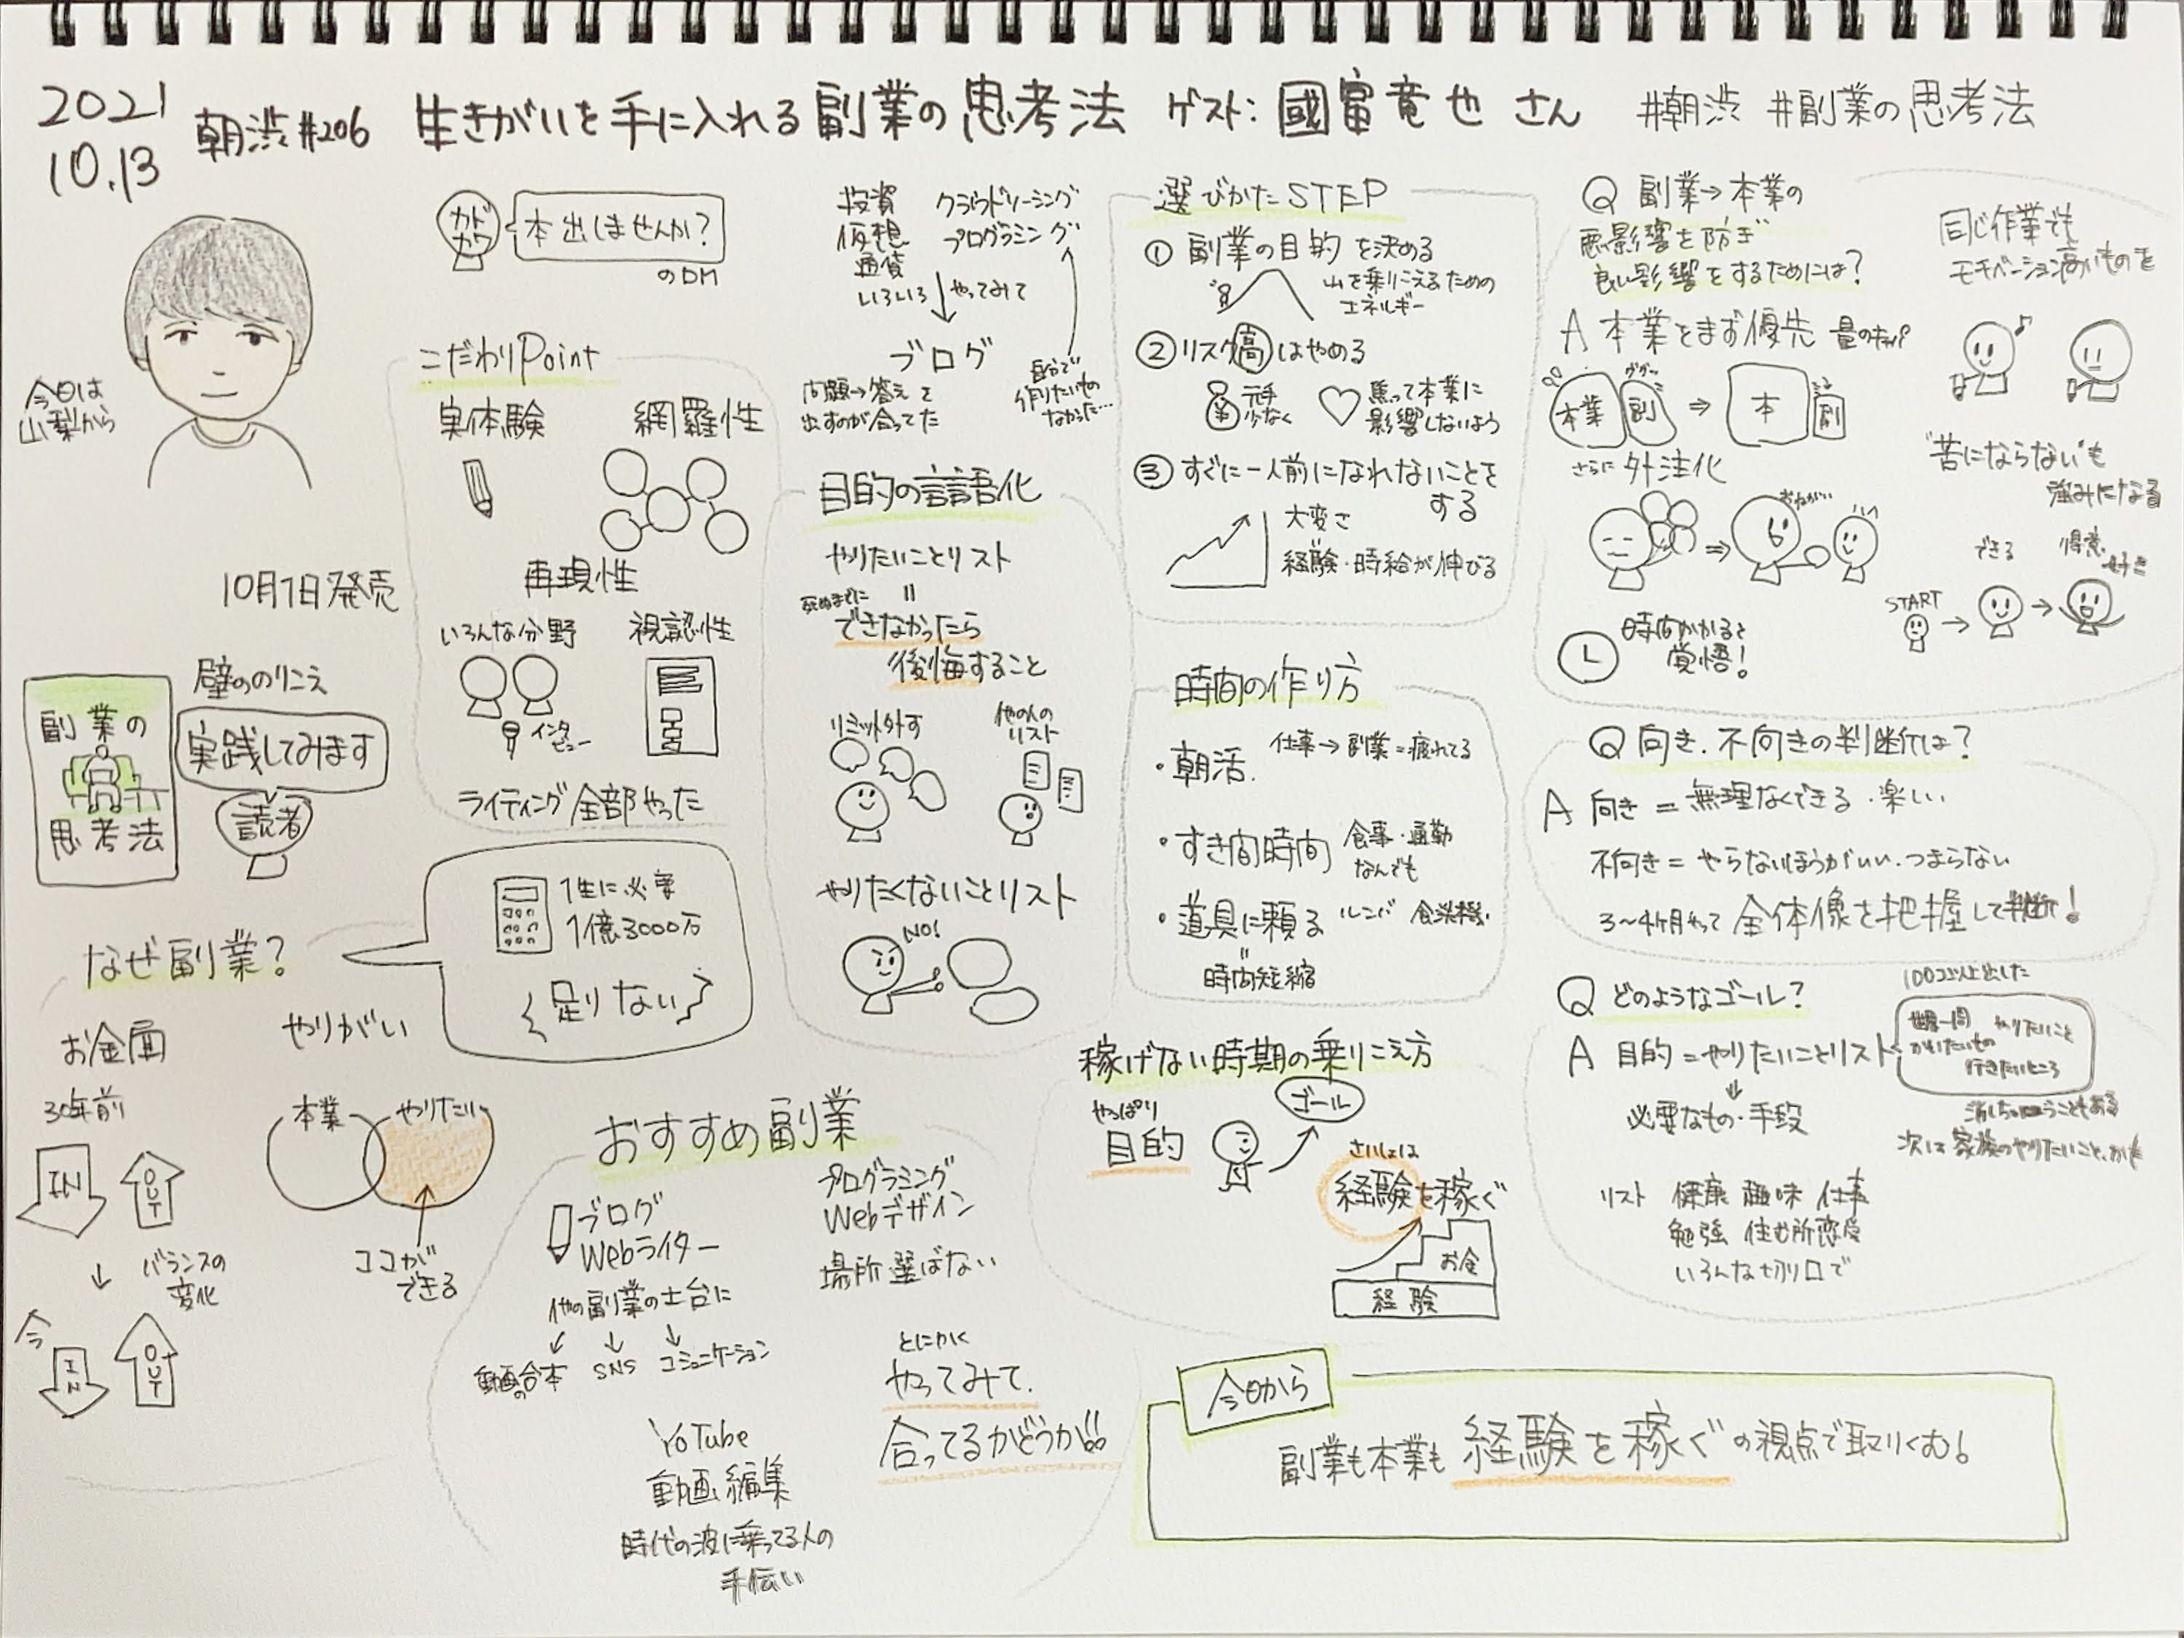 2021
10.13
朝渋#206
生きがいを手に入れる副業の思考法
ゲスト: 國富竜也さん
#朝渋 #副業の思考法
今日は
山梨から
10月1日発売
副業の
思考法
壁ののりこえ
実践してみます
読者
カドカワ
本出しませんか?
のDM
こだわりPoint
実体験
網羅性
再現性
いろんな分野
インタビュー
視認性
ライティング全部やった
なぜ副業?
1生に必要
1億3000万
足りない
お金
30年前
IN
OUT
↓
バランスの
変化
今
IN
OUT
やりがい
本業
やりたい
ココが
できる
投資
仮想
通貨
いろいろ
クラウドソーシング
プログラミング
やってみて
ブログ
問題→答えを
出すのが合ってた
自分で
作りたいもの
なかった…
目的の言語化
やりたいことリスト
=
死ぬまでに
できなかったら
後悔すること
リミット外す
他の人の
リスト
やりたくないことリスト
NO!
おすすめ副業
ブログ
Webライター
他の副業の土台に
動画の台本
SNS
コミュニケーション
プログラミング
Webデザイン
場所選ばない
YouTube
動画編集
時代の波に乗ってる人の
手伝い
とにかく
やってみて.
合ってるかどうか!!
選びかたSTEP
① 副業の目的を決める
山を乗りこえるための
エネルギー
② リスク高はやめる
元手
少なく
焦って本業に
影響しないよう
③ すぐに一人前になれないことを
する
大変さ
経験・時給が伸びる
時間の作り方
・朝活.
仕事→副業=疲れてる
・すき間時間
食事・通勤
なんでも
・道具に頼る
ルンバ 食洗機
"
時間短縮
稼げない時期の乗りこえ方
やっぱり
目的
ゴール
さいしょは
経験を稼ぐ
お金
経験
Q 副業→本業の
悪影響を防ぎ
良い影響をするためには?
A 本業をまず優先
本業
副
⇒
本
副
さらに 外注化
⇒
おねがい
時間かかると
覚悟!
同じ作業でも
モチベーション高いものを
"苦にならない"も
強みになる
START
→
できる
→
得意・
好き
Q 向き.不向きの判断は?
A 向き = 無理なくできる.楽しい
不向き = やらないほうがいい.つまらない
3〜4ヶ月やって 全体像を把握して判断!
Q どのようなゴール?
A 目的=やりたいことリスト
↓
必要なもの・手段
100コ以上出した
世界一周
やりたいこと
かいたいもの
行きたいところ
次は家族のやりたいこと.かも
リスト 健康 趣味 仕事
勉強 住む所 恋愛
いろんな切り口で
今日から
副業も本業も 経験を稼ぐの視点で取りくむ!